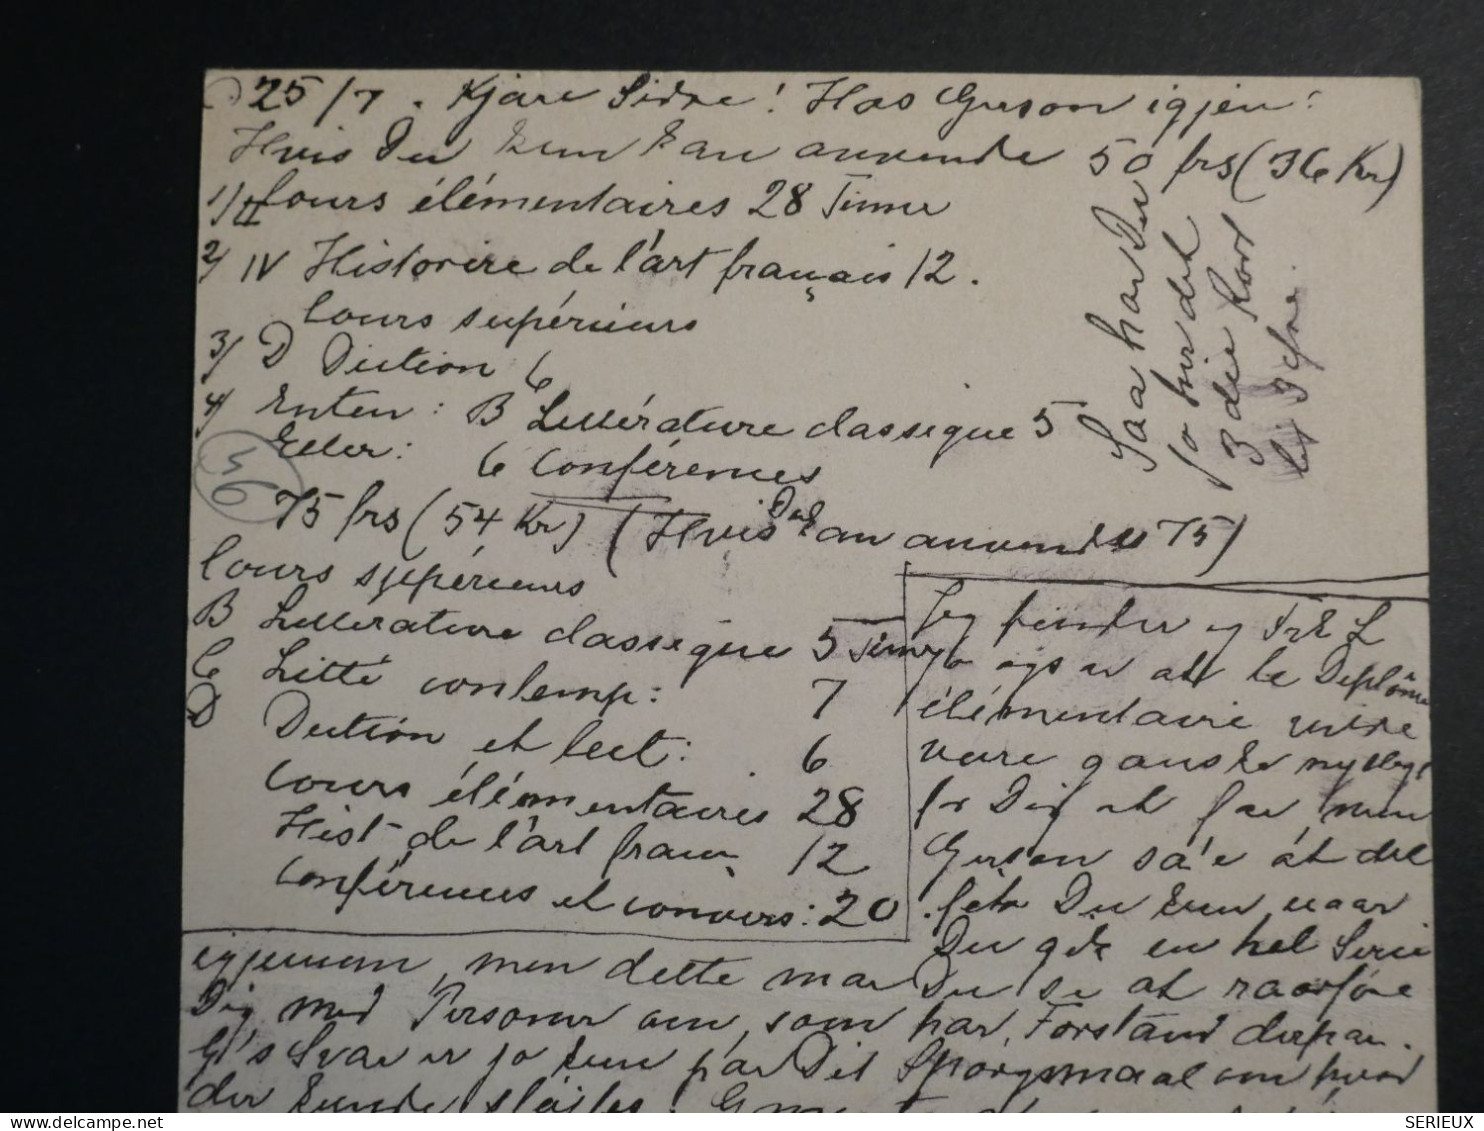 25/7. Kjære Sidse! Hos Gerson igjen:
Hvis Du kun kan anvende 50 frs (36 Kr)
1/ II Cours élémentaires 28 Timer
2/ IV Histoire de l'art français 12.
Cours supérieurs
3/ D Diction 6
4/ Enten: B Littérature classique 5
Eller: 6 Conférences
36
75 frs (54 Kr) (Hvis Du kan anvende 75)
Cours supérieurs
B Littérature classique 5 Timer
C Litté contemp: 7
D Diction et lect: 6
Cours élémentaires 28
Hist de l'art franç 12
Conférences et convers: 20
Saa har Du
jo her det
3 die Kort
til
Jeg finder og Frk L
jo ogsaa at te Diplôme
élémentaire vilde
være ganske
for Dig at faa men
Gerson sa'e at det
faar Du kun naar
Du gik en hel Serie
igjennem, men dette maa Du se at raadføre
Dig med Personer om, som har Forstand derpaa.
G's Svar er jo kun paa Dit Spørgsmaal om hvad
der kunde slaaes
SERIEUX